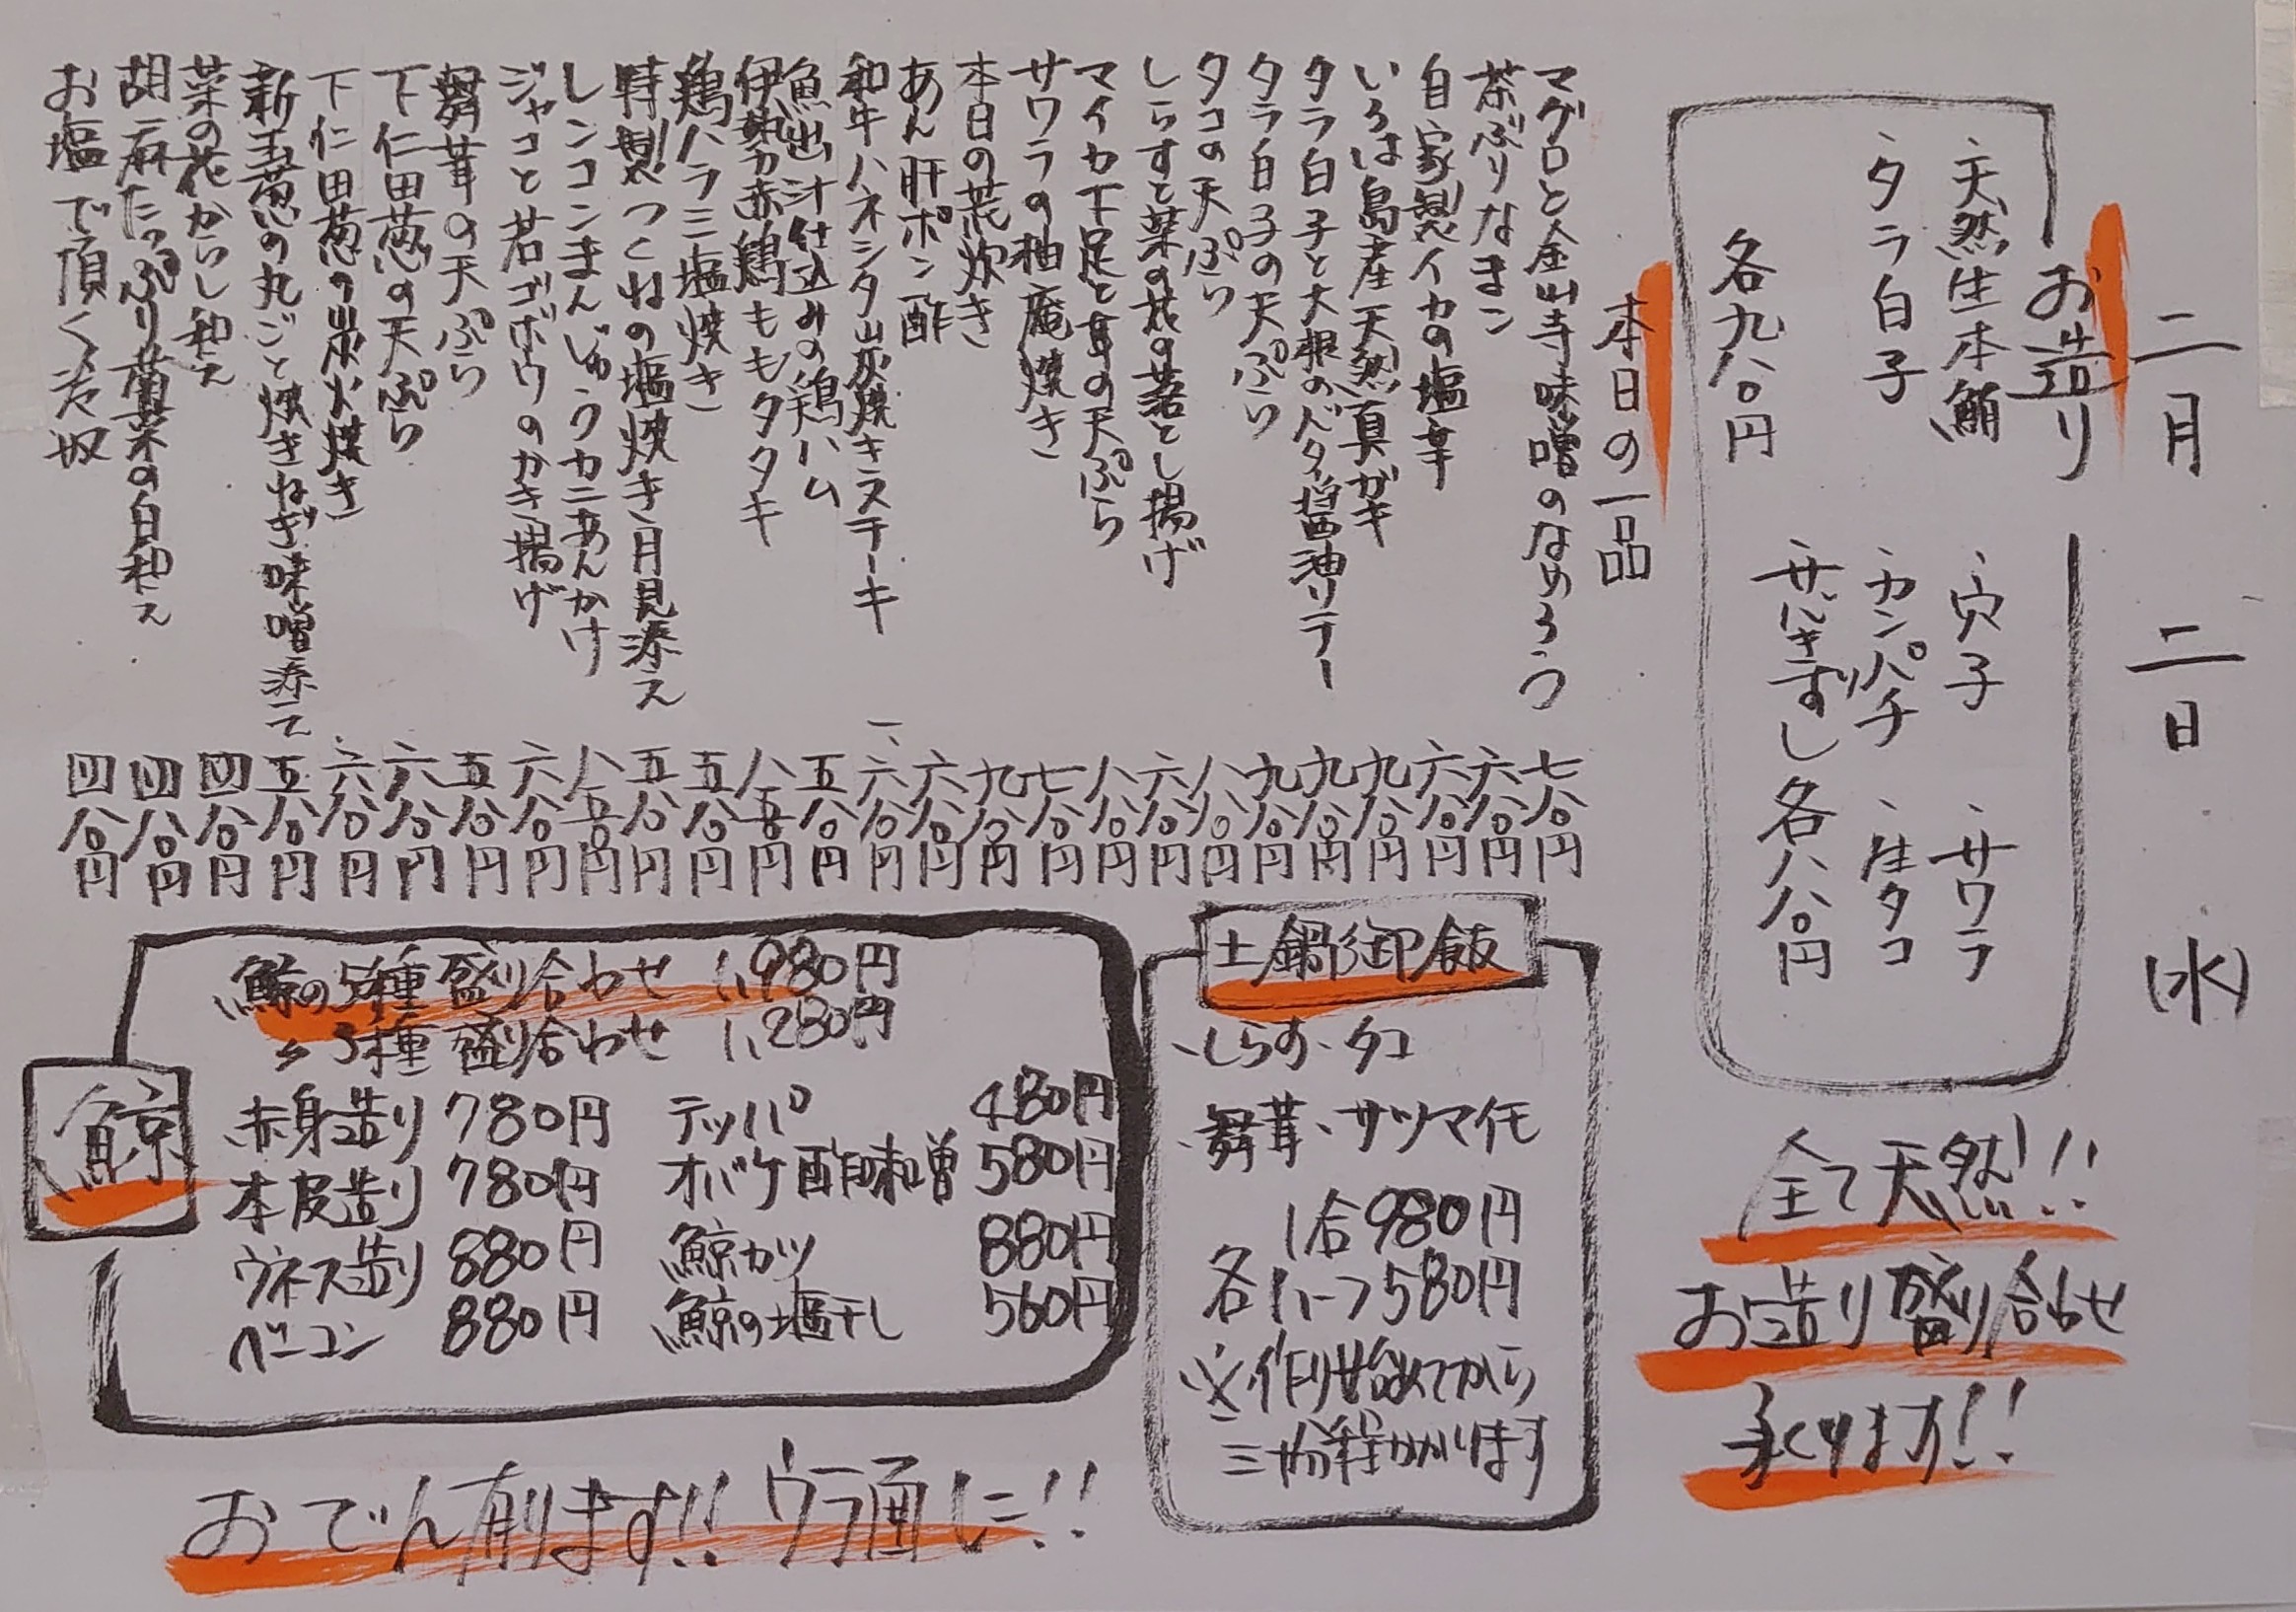 二月二日(水)
お造り
、天然生本鮪 、穴子 、サワラ
、タラ白子 、カンパチ 、生タコ
各九八〇円 、サバきずし 各八八〇円
全て天然!!
お造り盛り合わせ
承ります!!
本日の一品
マグロと金山寺味噌のなめろう 七八〇円
茶ぶりなまこ 六八〇円
自家製イカの塩辛 六八〇円
いろは島産天然真ガキ 九八〇円
タラ白子と大根のバター醤油ソテー 九八〇円
タラ白子の天ぷら 九八〇円
タコの天ぷら 八八〇円
しらすと菜の花の落とし揚げ 六八〇円
マイカ下足と耳の天ぷら 八八〇円
サワラの柚庵焼き 七八〇円
本日の荒炊き 九八〇円
あん肝ポン酢 六八〇円
和牛ハネシタ炭焼きステーキ 一、六八〇円
魚出汁仕込みの鶏ハム 五八〇円
伊勢赤鶏ももタタキ 八五〇円
鶏ハラミ塩焼き 五八〇円
特製つくねの塩焼き月見添え 五八〇円
レンコンまんじゅうカニあんかけ 八五〇円
ジャコと若ゴボウのかき揚げ 六八〇円
舞茸の天ぷら 五八〇円
下仁田葱の天ぷら 六八〇円
下仁田葱の炭火焼き 六八〇円
新玉葱の丸ごと焼きねぎ味噌添えて 五八〇円
菜の花からし和え 四八〇円
胡麻たっぷり菊菜の白和え 四八〇円
お塩で頂く冷奴 四八〇円
土鍋御飯
、しらす、タコ
、舞茸、サツマイモ
各 1合980円
ハーフ580円
※作り始めてから
三十分程かかります
鯨
鯨の5種盛り合わせ 1,980円
〃3種盛り合わせ 1,280円
赤身造り 780円 テッパ 480円
本皮造り 780円 オバケ酢味噌 580円
ウネス造り 880円 鯨カツ 880円
ベーコン 880円 鯨の塩干し 560円
おでん有ります!!ウラ面に!!